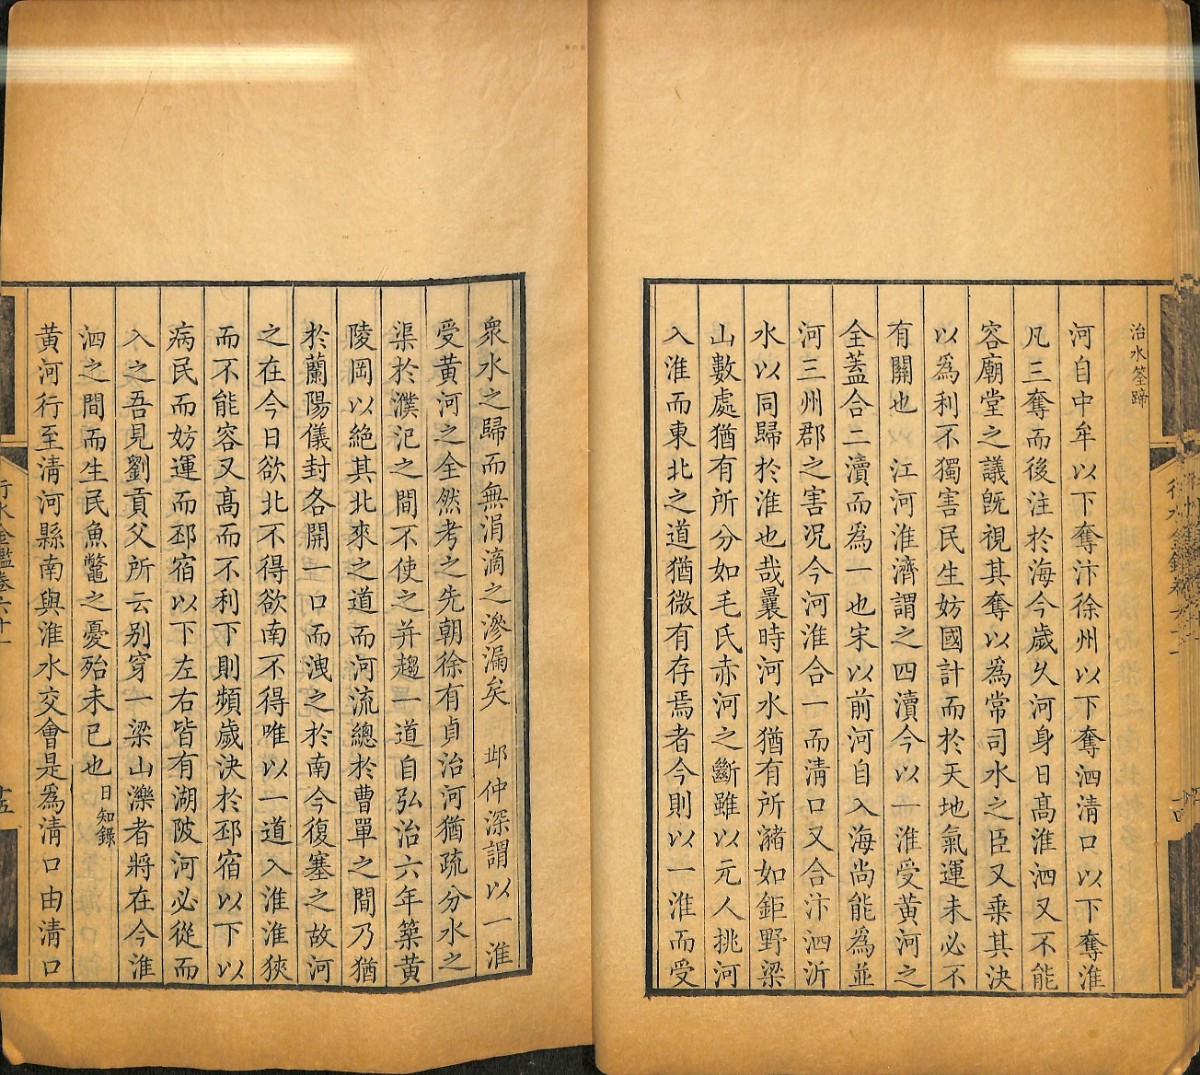 治水筌蹄
河自中牟以下奪汴徐州以下奪泗清口以下奪淮
凡三奪而後注於海今歲久河身日高淮泗又不能
容廟堂之議旣視其奪以爲常司水之臣又乗其決
以爲利不獨害民生妨國計而於天地氣運未必不
有關也江河淮濟謂之四瀆今以一淮受黃河之
全蓋合二瀆而爲一也宋以前河自入海尚能爲並
河三州郡之害况今河淮合一而清口又合汴泗沂
水以同歸於淮也哉曩時河水猶有所瀦如鉅野梁
山數處猶有所分如毛氏赤河之斷雖以元人挑河
入淮而東北之道猶微有存焉者今則以一淮而受
衆水之歸而無涓滴之滲漏矣 邱仲深謂以一淮
受黃河之全然考之先朝徐有貞治河猶疏分水之
渠於濮汜之間不使之并趨一道自弘治六年築黃
陵岡以絶其北來之道而河流總於曹單之間乃猶
於蘭陽儀封各開一口而洩之於南今復塞之故河
之在今日欲北不得欲南不得唯以一道入淮淮狹
而不能容又高而不利下則頻歲決於邳宿以下以
病民而妨運而邳宿以下左右皆有湖陂河必從而
入之吾見劉貢父所云别穿一梁山濼者將在今淮
泗之間而生民魚鼈之憂殆未已也 日知錄
黃河行至清河縣南與淮水交會是爲清口由清口
行水金鑑卷六十一
十五